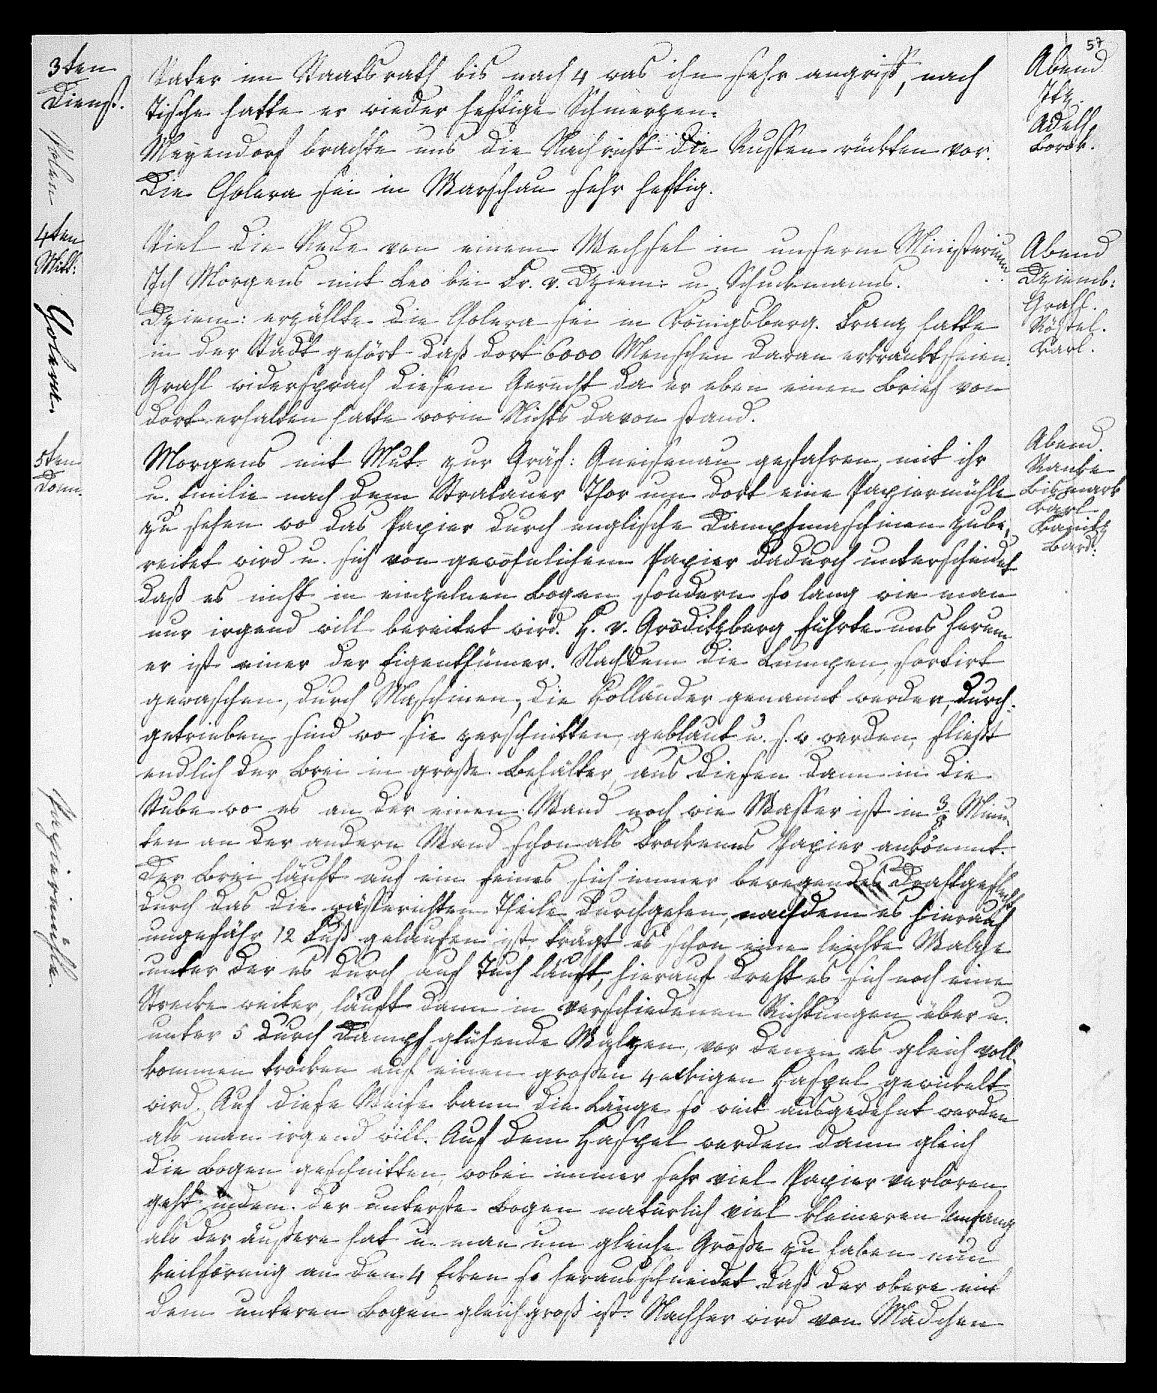 57
3ten
Dienst.
Vater im Staatsrath bis nach 4 was ihn sehr angriff, nach
Tische hatte er wieder heftige Schmerzen.
Meyendorf brachte uns die Nachricht die Russen rückten vor.
Die Cholera sei in Warschau sehr heftig.
Abend
Itz.
Adelh.
Polen
4ten
Mitt:
Viel die Rede von einem Wechsel in unserm Ministerium
Ich Morgens mit Leo bei Fr. v. Dziem: u Schuckmanns.
Dziem: erzällte die Colera sei in Königsberg. Franz hatte
in der Stadt gehört daß dort 6000 Menschen daran erkrankt seien.
Grahl widersprach diesem Gerücht da er eben einen Brief von
dort erhalten hatte worin Nichts davon stand.
Abend
Dziemb:
Grahl.
Röstel.
Karl.
Colera.
5ten
Donn.
Morgens mit Mut. zur Gräf: Gneisenau gefahren, mit ihr
u. Emilie nach dem Stralauer Thor um dort eine Papiermühle
zu sehen wo das Papier durch englische Dampfmaschinen zube-
reitet wird u. sich von gewöhnlichem Papier dadurch unterscheidet
daß es nicht in einzelnen Bogen sondern so lang wie man
nur irgend will bereitet wird. H. v. Gröditzberg führte uns herum
er ist einer der Eigenthümer. Nachdem die Lumpen, sortirt
gewaschen, durch Maschinen, die Holländer genannt werden, durch-
getrieben sind wo sie zerschnitten, geblaut u. s. w werden, fließt
endlich der Brei in große Behälter, aus diesen dann in die
Stube wo es an der einen Wand noch wie Wasser ist in 3 Minu-
ten an der andern Wand schon als trockenes Papier ankömmt.
Der Brei läuft auf ein feines sich immer bewegendes Drathgeflecht
durch das die wässerichten Theile durchgehen, nachdem es hierauf
ungefähr 12 Fuß gelaufen ist trägt es schon eine leichte Walze
unter der es durch auf Tuch läuft, hierauf dreht es sich noch eine
Strecke weiter, läuft dann in verschiedenen Richtungen über u.
unter 5 durch Dampf glühende Walzen, vor denen es gleich voll-
kommen trocken auf einen großen 4eckigen Haspel gewickelt
wird. Auf diese Weise kann die Länge so weit ausgedehnt werden
als man irgend will. Auf dem Haspel werden dann gleich
die Bogen geschnitten, wobei immer sehr viel Papier verloren
geht indem der unterste Bogen natürlich viel kleineren Umfang
als der äußere hat u. man um gleiche Größe zu haben nun
keilförmig an den 4 Ecken so herausschneidet daß der obere mit
dem unteren Bogen gleich groß ist. Nachher wird von Mädchen
Abend.
Ranke
Bismark
Karl
Kanitz
Bard:
Papiermühle.